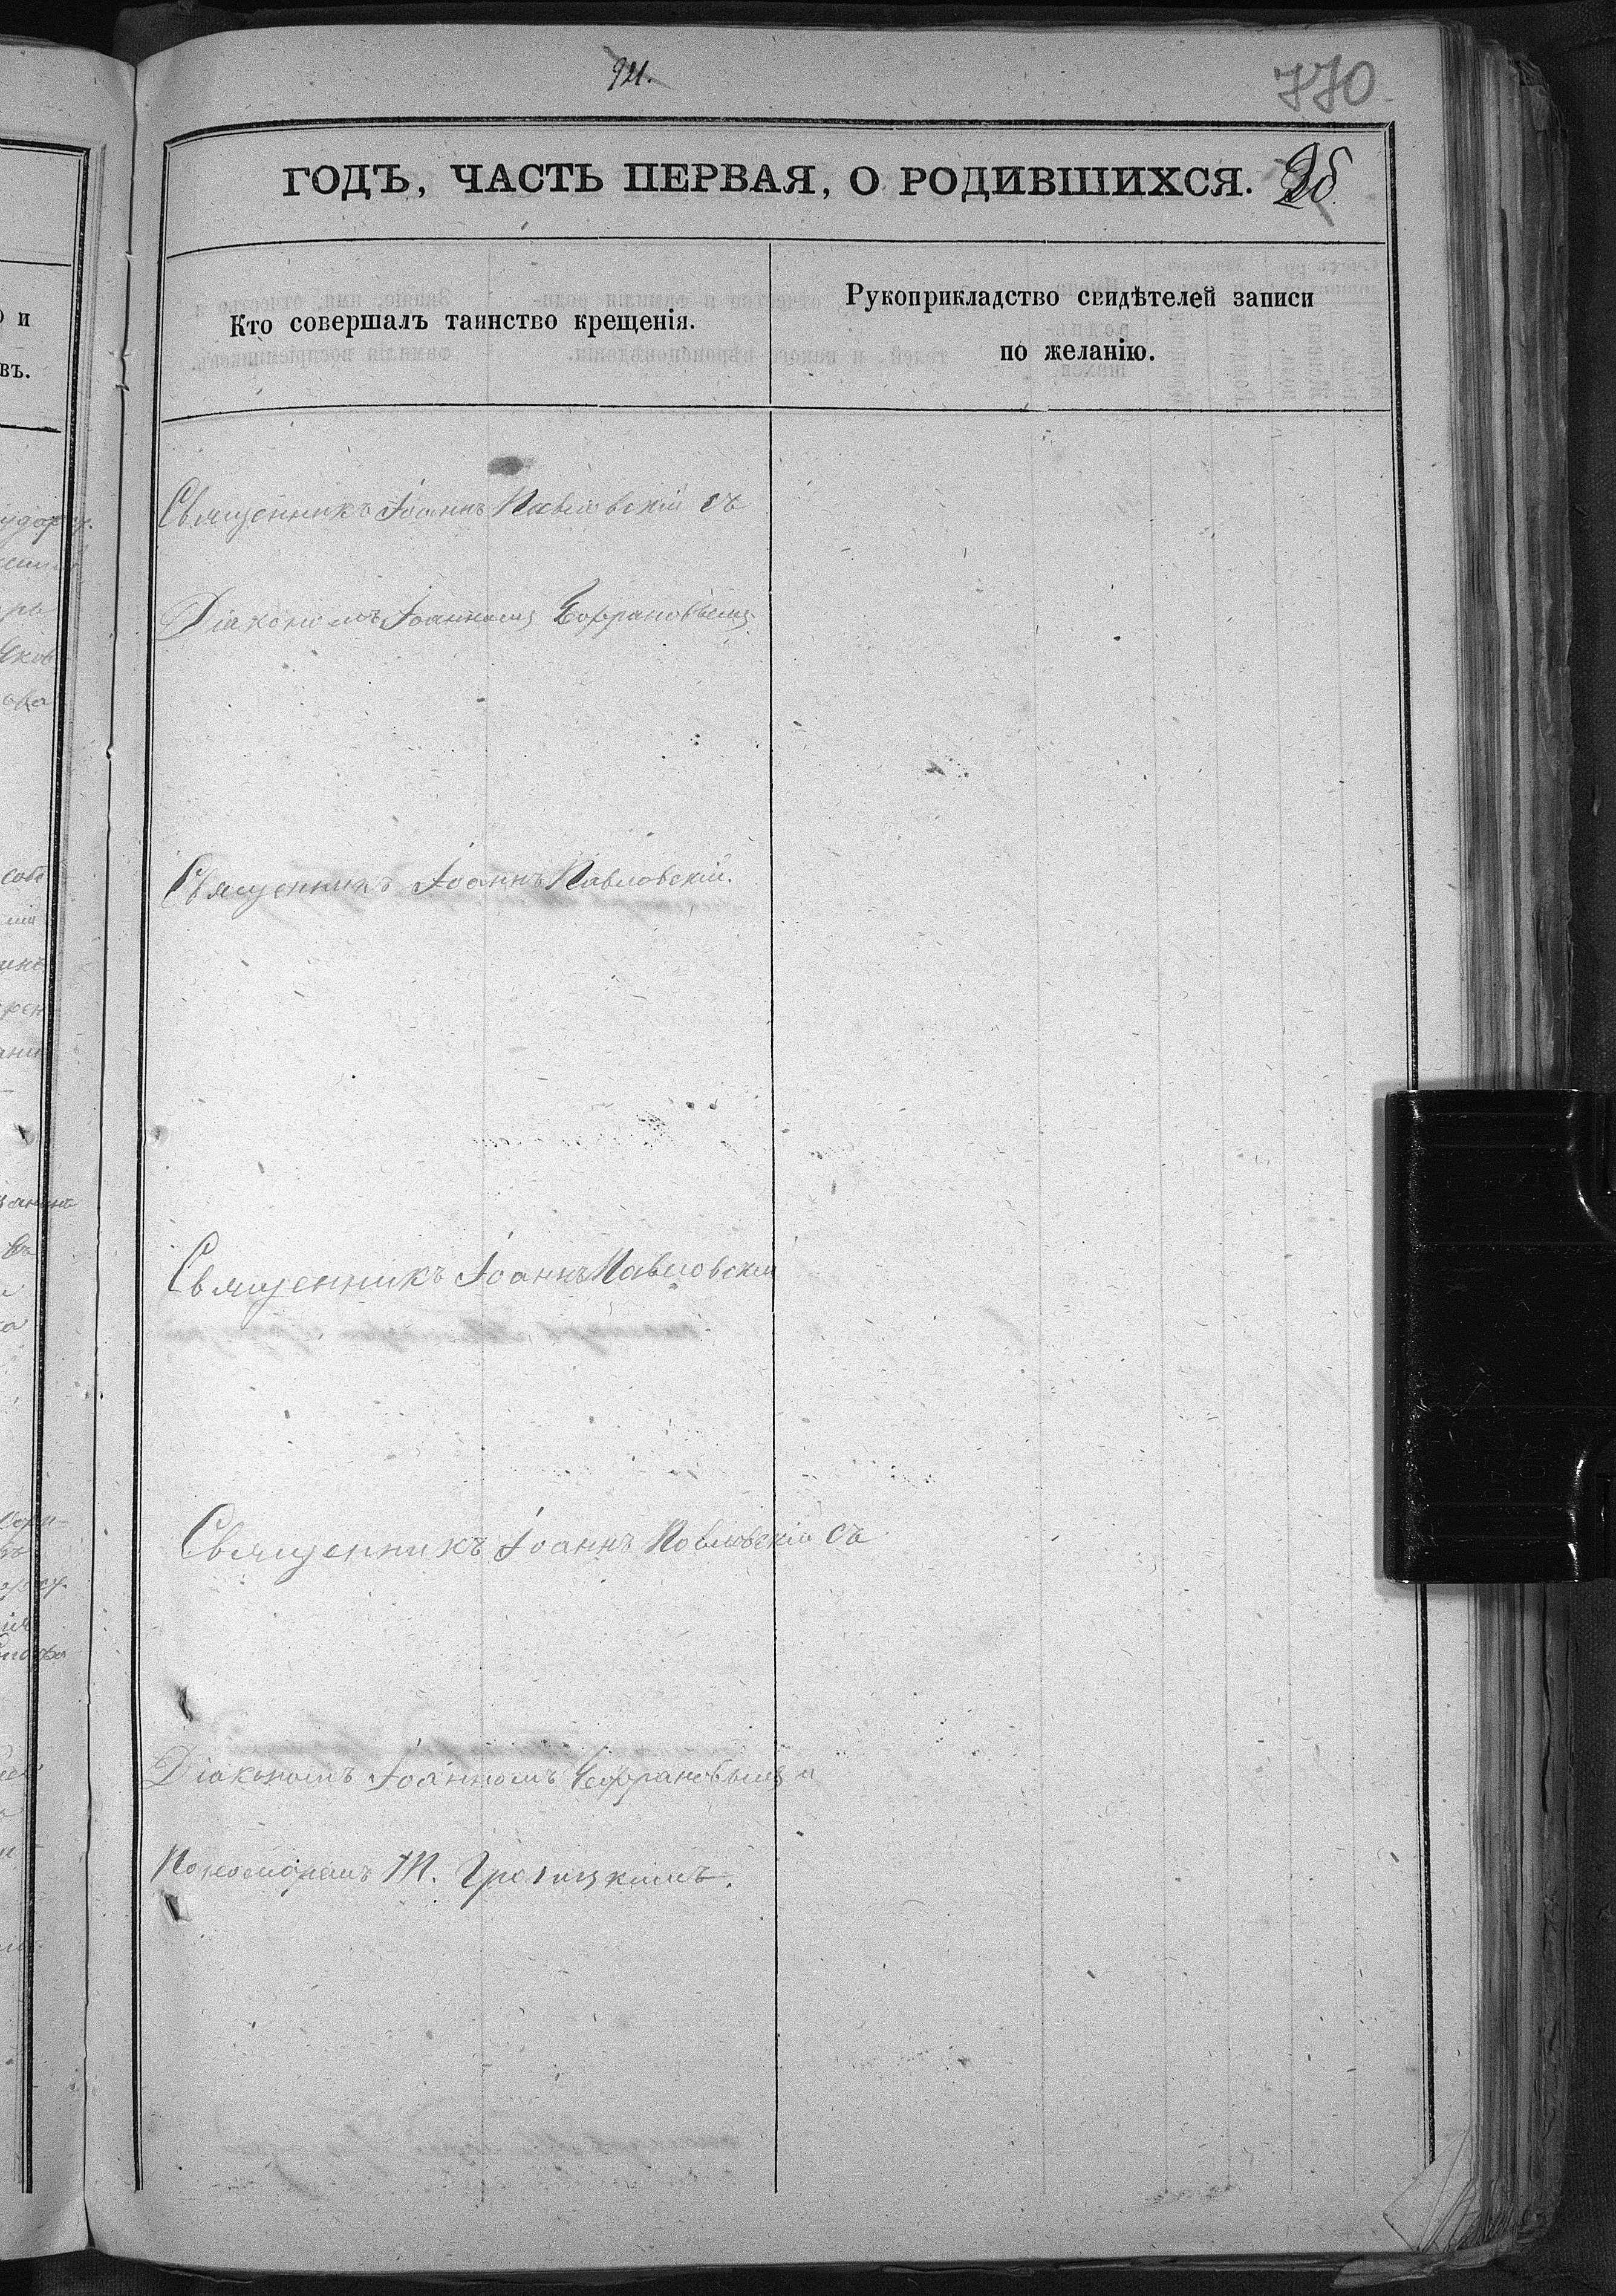 921.
770
ГОДЪ, ЧАСТЬ ПЕРВАЯ, О РОДИВШИХСЯ.
Кто совершалъ таинство крещенія.
Рукоприкладство свидѣтелей записи
по желанію.
Священникъ Іоаннъ Павловскій съ
Діакономъ Іоанномъ
Священникъ Іоаннъ Павловскій.
Священникъ Іоаннъ Павловскій
Священникъ Іоаннъ Павловскій съ
Діакономъ Іоанномъ и
Пономаремъ М.